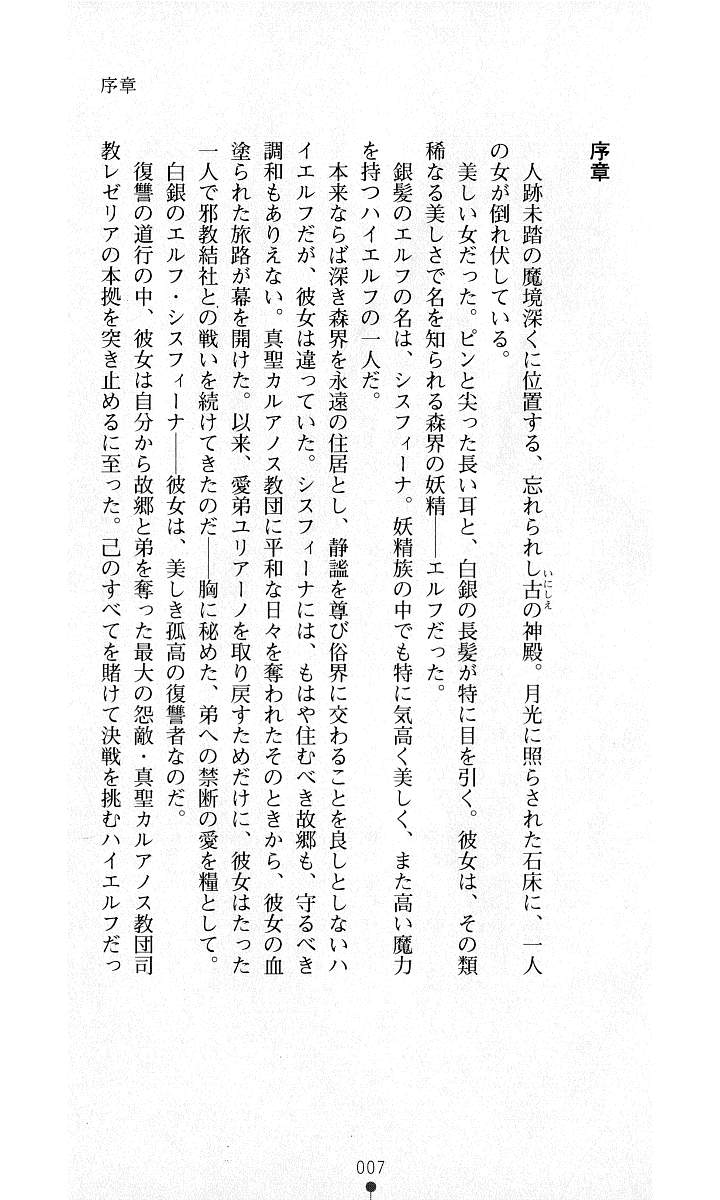 序章
序章
人跡未踏の魔境深くに位置する、忘れられし古の神殿。月光に照らされた石床に、一人
いにしえ
の女が倒れ伏している。
美しい女だった。ピンと尖った長い耳と、白銀の長髪が特に目を引く。彼女は、その類
稀なる美しさで名を知られる森界の妖精――エルフだった。
銀髪のエルフの名は、シスフィーナ。妖精族の中でも特に気高く美しく、また高い魔力
を持つハイエルフの一人だ。
本来ならば深き森界を永遠の住居とし、静謐を尊び俗界に交わることを良しとしないハ
イエルフだが、彼女は違っていた。シスフィーナには、もはや住むべき故郷も、守るべき
調和もありえない。真聖カルアノス教団に平和な日々を奪われたそのときから、彼女の血
塗られた旅路が幕を開けた。以来、愛弟ユリアーノを取り戻すためだけに、彼女はたった
一人で邪教結社との戦いを続けてきたのだ――胸に秘めた、弟への禁断の愛を糧として。
白銀のエルフ・シスフィーナ――彼女は、美しき孤高の復讐者なのだ。
復讐の道行の中、彼女は自分から故郷と弟を奪った最大の怨敵・真聖カルアノス教団司
教レゼリアの本拠を突き止めるに至った。己のすべてを賭けて決戦を挑むハイエルフだっ
007